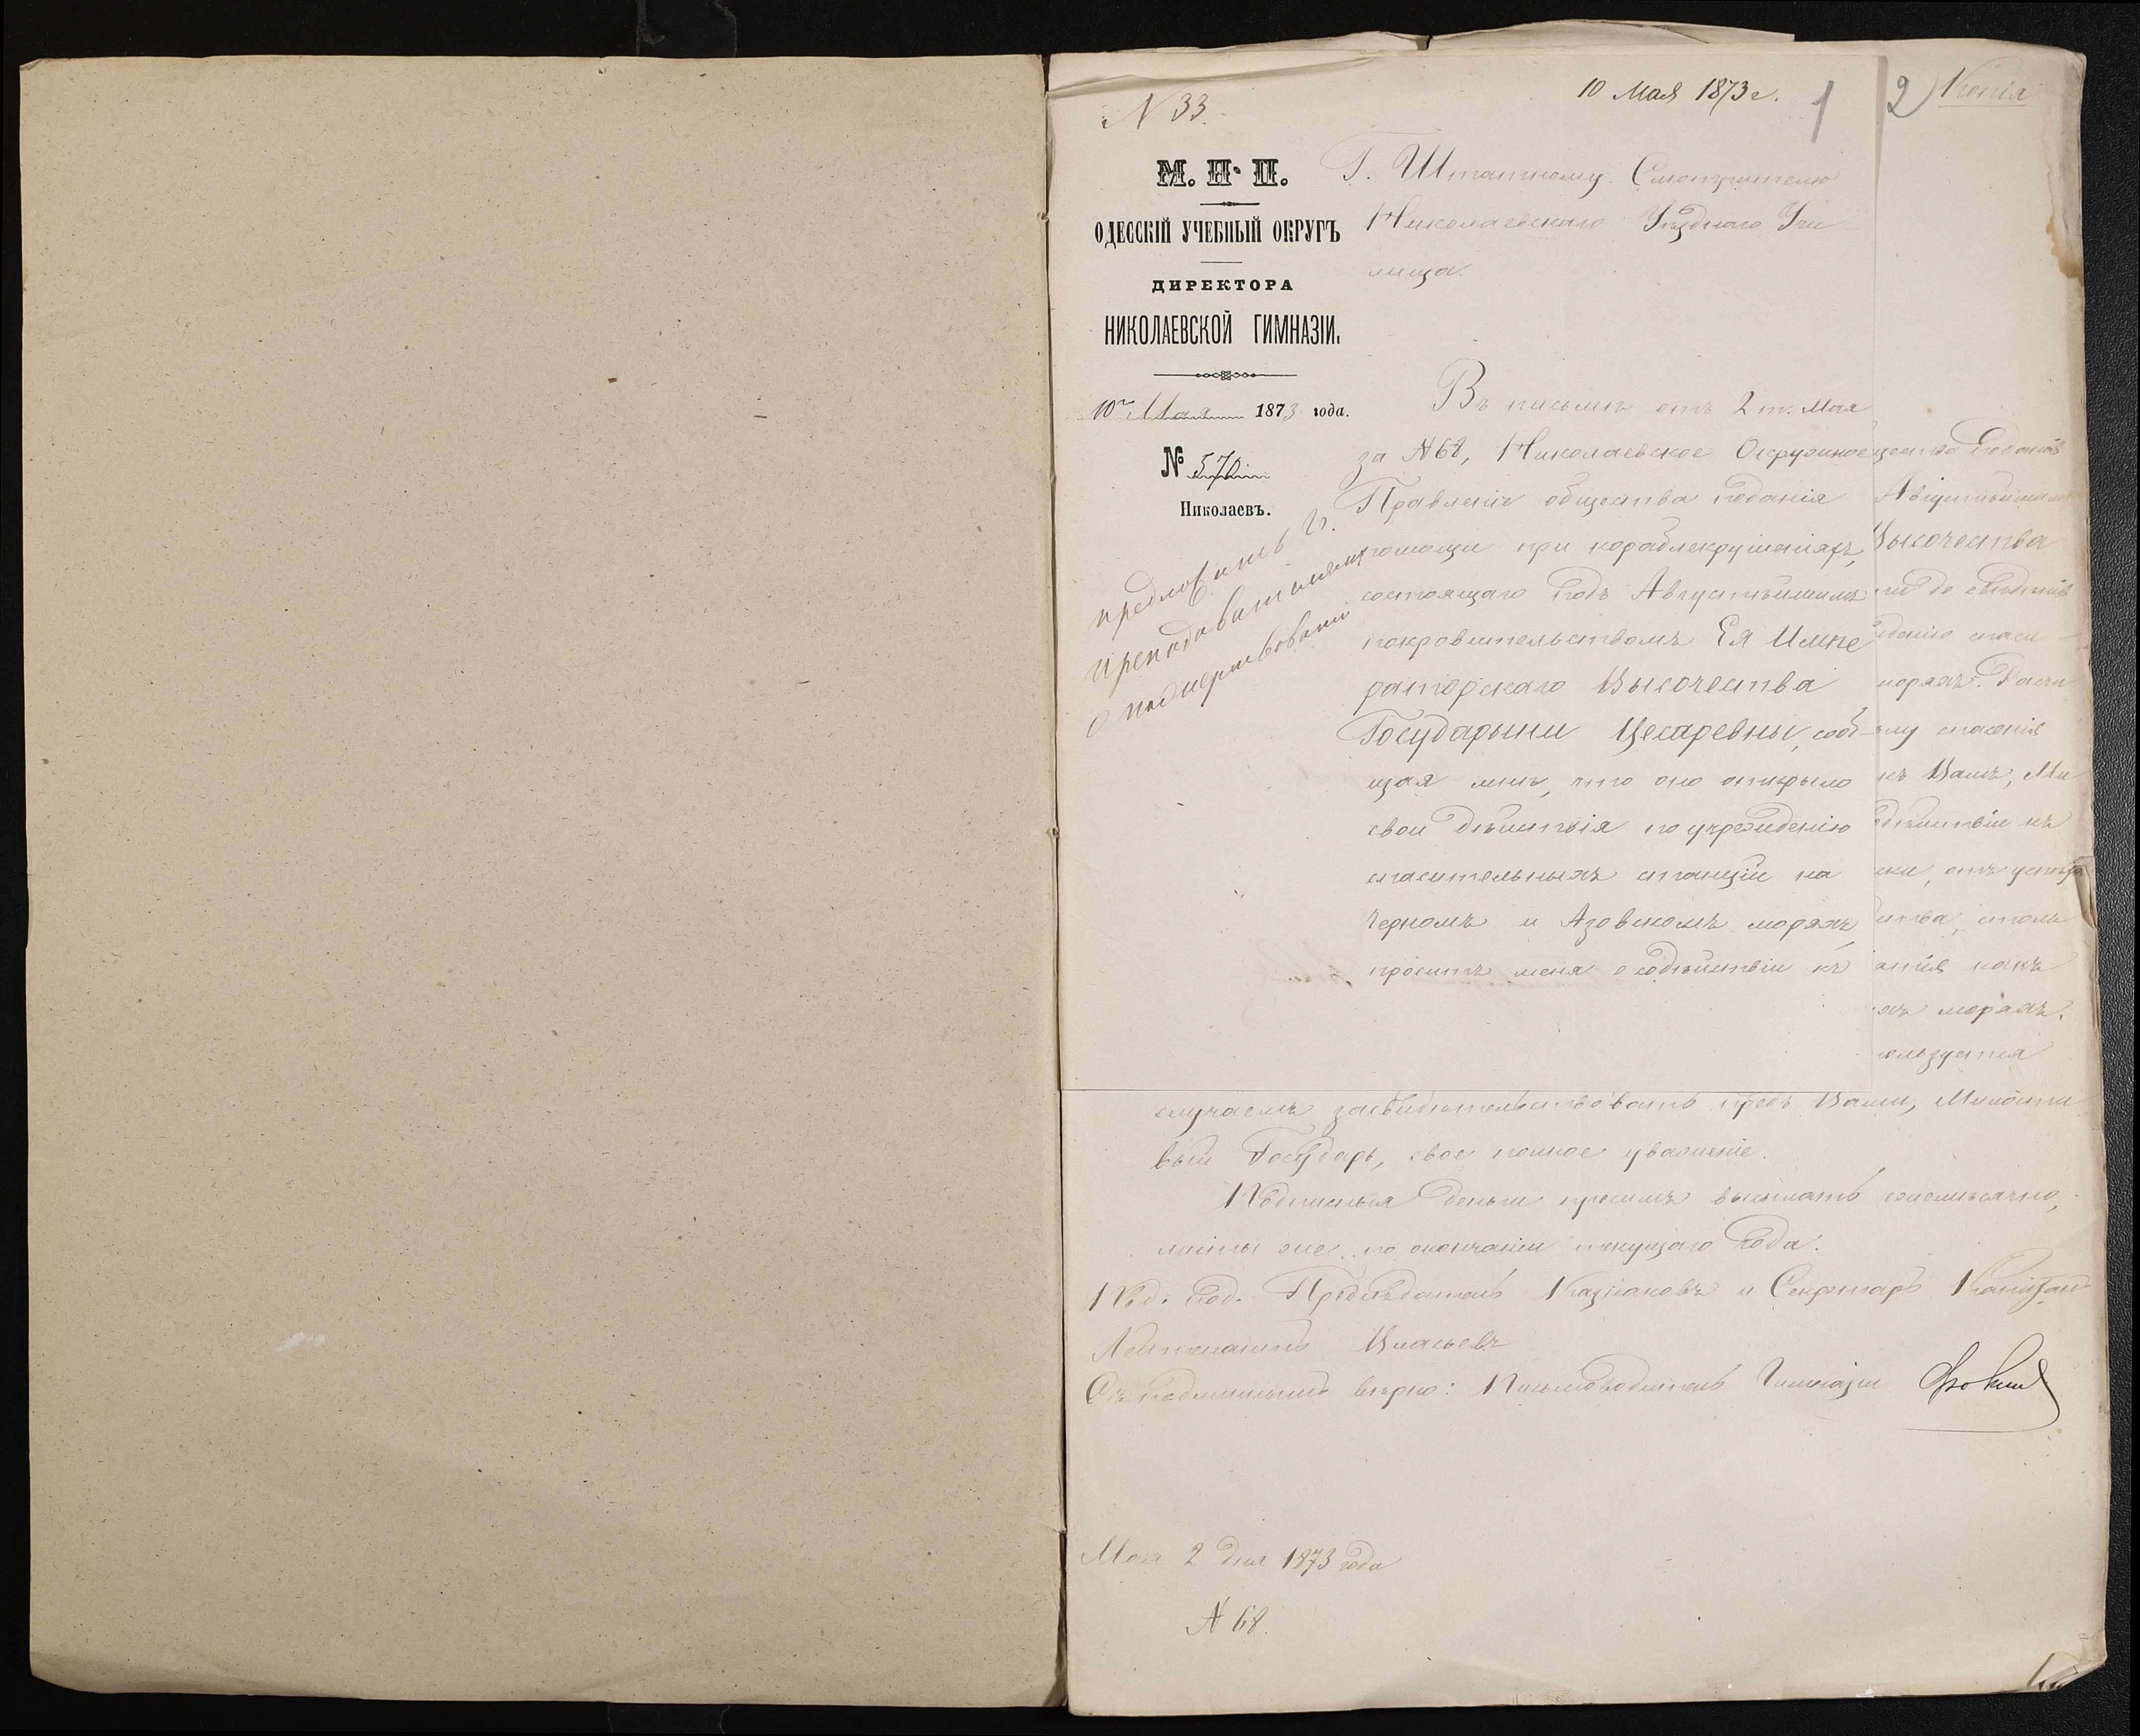 N 33.
10 Мая 1873 г.
1
2
Копія
М. Н. П.
ОДЕССКІЙ УЧЕБНЫЙ ОКРУГЪ
ДИРЕКТОРА
НИКОЛАЕВСКОЙ ГИМНАЗІИ.
10 Мая 1873 года.
№ 570
Николаевъ.
предложить Гг.
преподавателямъ
о пожертвованіи
Г. Штатному Смотрителю
Николаевскаго Уѣзднаго Учи
лища.
Въ письмѣ отъ 2 т. Мая
за N 68, Николаевское Окружное
Правленіе общества поданія
помощи при кораблекрушеніяхъ,
состоящаго подъ Августѣйшимъ
покровительствомъ Ея Импе
раторскаго Высочества
Государыни Цесаревны, сооб-
щая мнѣ, что оно открыло
свои дѣйствія по учрежденію
спасительныхъ станцій на
Черномъ и Азовскомъ моряхъ,
проситъ меня о содѣйствіи къ
щества поданія
Августѣйшимъ
Высочества
морях. Дости
спасенія
къ Вамъ, Ми
одѣйствіи къ
ски, отъ успѣха
столь
какъ
хъ моряхъ.
ользуется
случаемъ засвидѣтельствовать предъ Вами, Милости
вый Государь, свое полное уваженіе.
Подписныя деньги просимъ высылать ежемѣсячно,
листы же по окончаніи текущаго года.
Под. под. Предсѣдатель Казнаковъ и Секретарь Капитанъ
Лейтенантъ Власьевъ
Съ подлиннымъ вѣрно: Письмоводитель Гимназіи
Мая 2 дня 1873 года
N 68.